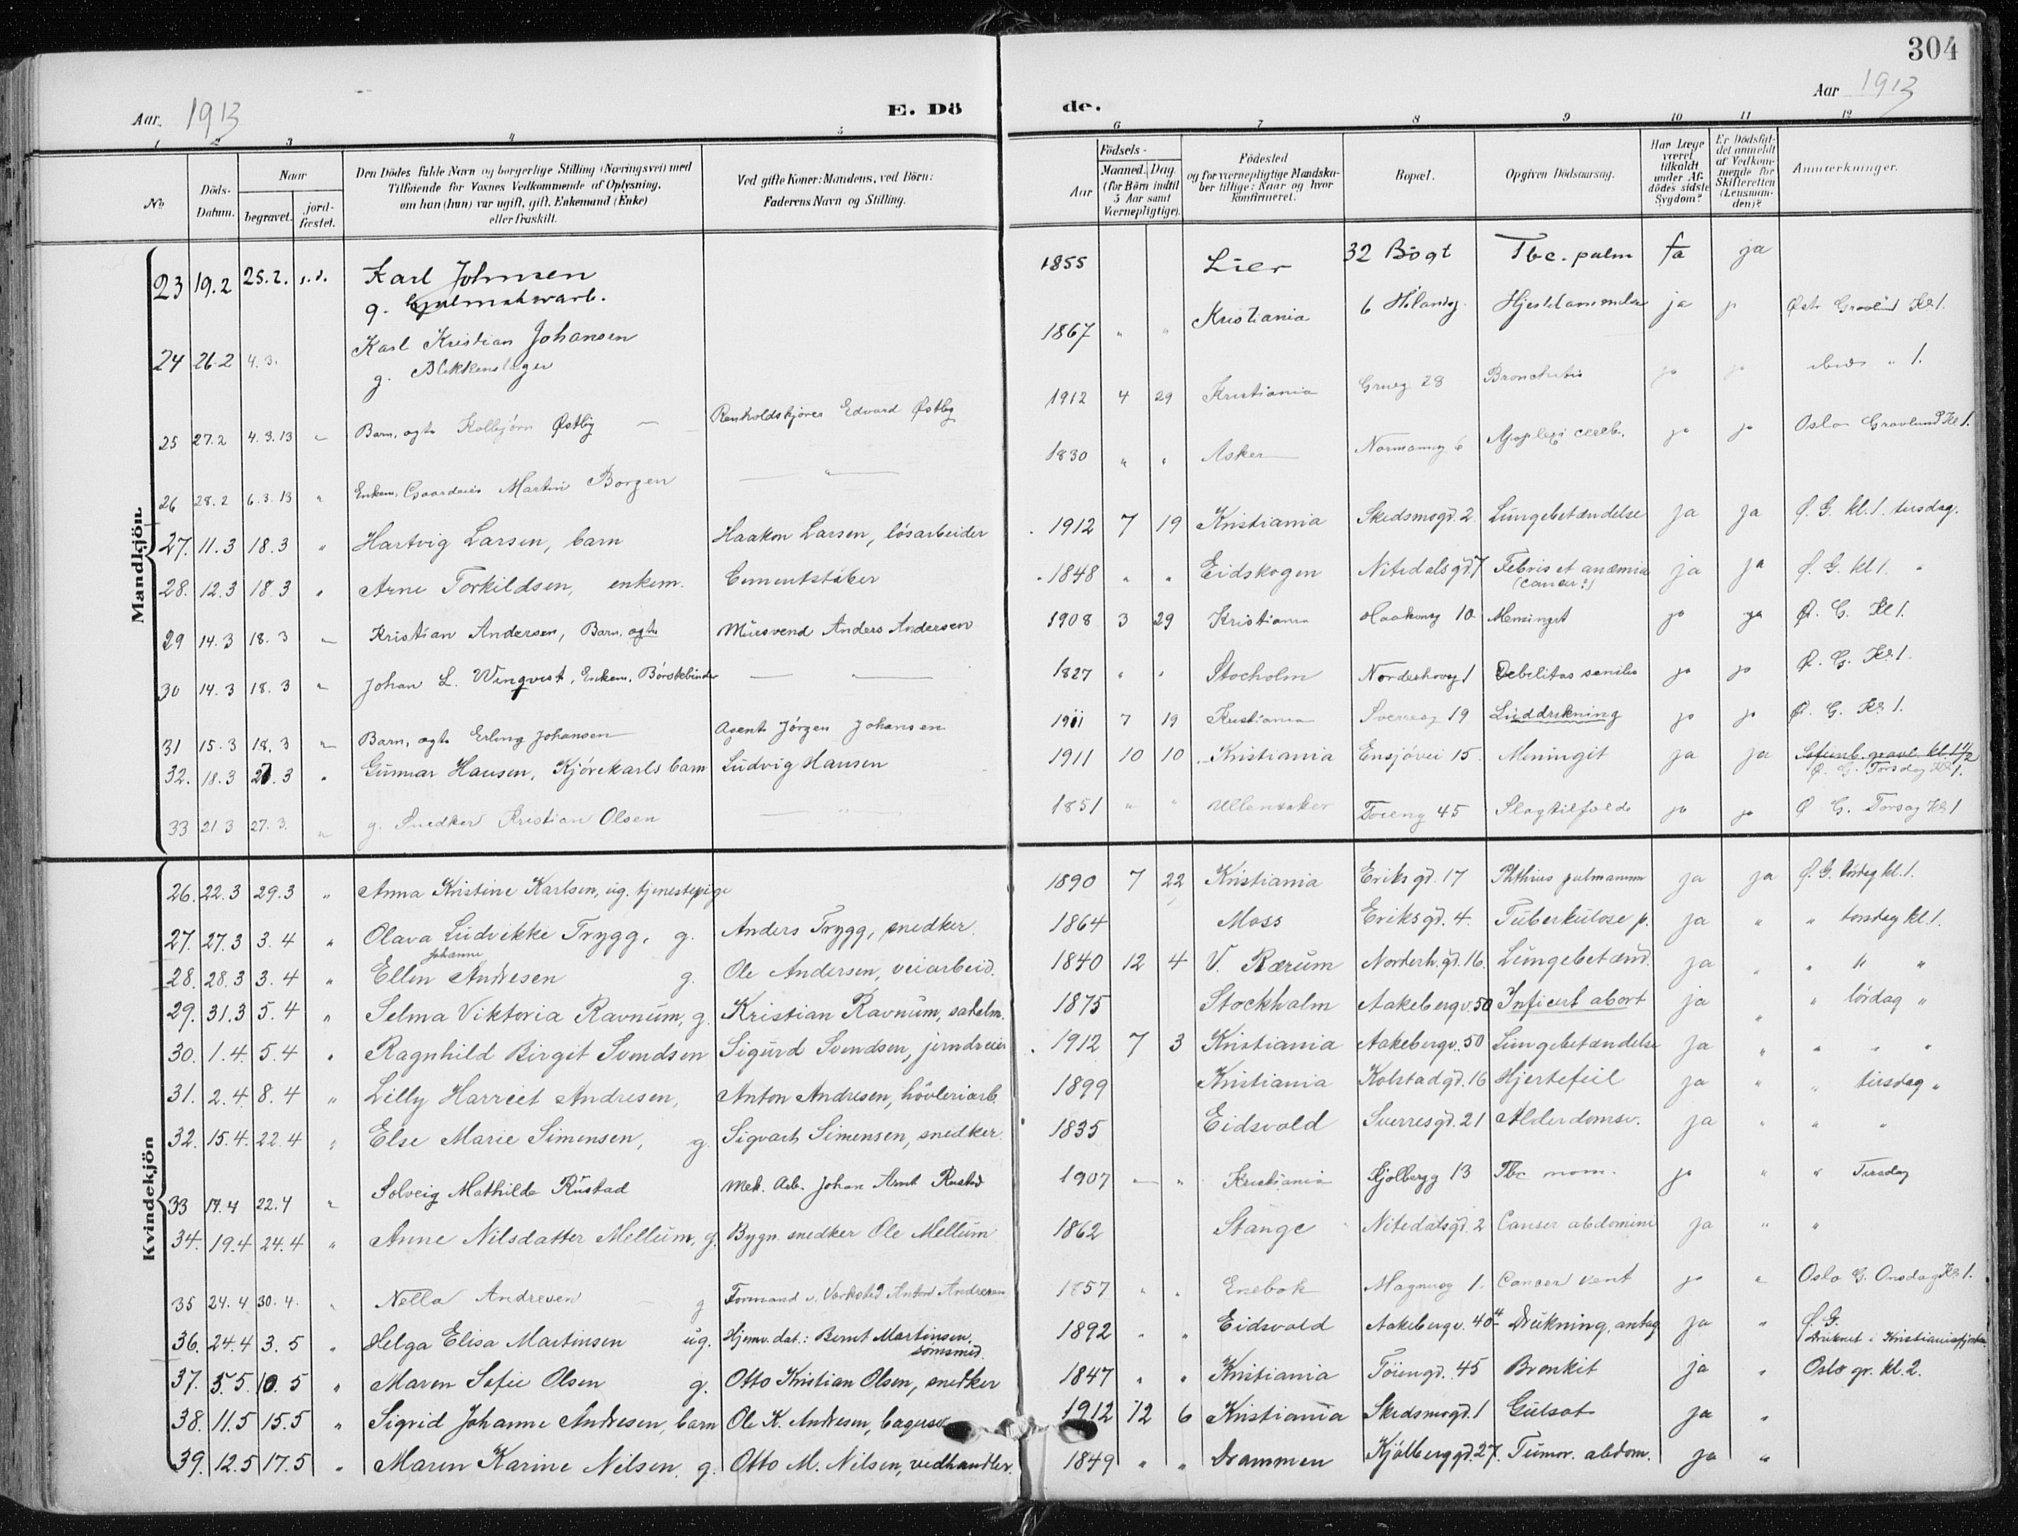 304
Aar 1913
E. Dö
de.
Aar 1913
1 2 3 4 5 6 7 8 9 10 11 12
No.
Döds-Datum.
Naar
begravet.
jord-fæstet.
Den Dödes fulde Navn og borgerlige Stilling (Næringsvei) med
Tilföiende for Voxnes Vedkommende af Oplysning,
om han (hun) var ugift, gift, Enkemand (Enke)
eller fraskilt.
Ved gifte Koner: Mandens, ved Börn:
Faderens Navn og Stilling.
Födsels-
Aar
Maaned. Dag.
(for Börn indtil
5 Aar samt
Værnepligtige).
Födested
og for værnepligtige Mandska-
ber tillige: Naar og hvor
konfirmeret.
Bopæl.
Opgiven Dödsaarsag.
Har Læge
været
tilkaldt
under Af-
dödes sidste
Sygdom?
Er Dödsfal-
det anmeldt
af Vedkom-
mende for
Skifteretten
(Lensman-
den)?
Anmerkninger.
Mandkjön.
23 19.2 25.2. Karl Johnsen 1855 Lier 32 Bögt Tbc. pulm ja ja
g.
24 26.2 4.3. Karl Kristian Johansen 1867 " " Kristiania 6 ja Østr Gravlund Kl 1.
g. Blikkenslager
25 27.2 4.3.13 " Barn, egte Kolbjørn Østby Renholdskjører Edvard Østby 1912 4 29 Kristiania Grueg 28 Bronchitis ja ja " 1.
26 28.2 6.3.13 " Enkem. Martin Borgen — " — 1830 " " Asker Normanng 6 Apoplexi cereb. ja ja Oslo Gravlund Kl 1.
27. 11.3 18.3 " Hartvig Larsen, barn Haakon Larsen, lösarbeider 1912 7 19 Kristiania Skedsmogd. 2 Lungebetændelse ja ja Ø. G. kl. 1. tirsdag.
28. 12.3 18.3 " Arne Torkildsen, enkem. Cementstöber 1848 " " Eidskogen Nitedalsgd 7 Febris et anæmia (cancer?) ja ja Ø. G. kl 1. "
29 14.3 18.3 " Kristian Andersen, Barn, egte Mursvend Anders Andersen 1908 3 29 Kristiania Haakonsg 10 Meningit ja ja Ø. G. Kl 1.
30 14.3 18.3 " Johan L. Winqvist, Enkem. Börstebinder — — 1827 " " Stocholm Nordeshovg 1 Debilitas senilis ja ja Ø. G. Kl. 1.
31 15.3 18.3 " Barn, egte Erling Johansen Agent Jörgen Johansen 1911 7 19 Kristiania Sverresg 19 Luddrikning ja ja Ø. G. Kl 1.
32. 18.3 27.3 " Gunnar Hansen, Kjörekarls barn Ludvig Hansen 1911 10 10 Kristiania Ensjövei 15 Meningit ja ja Ø. G. Torsdag Kl 1.
33 21.3 27.3. " g. Snedker Kristian Olsen — " — 1851 " " Ullensaker Töieng 45 Slagtilfælde ja ja Ø G. Torsdag Kl 1
Kvindekjön
26. 22.3 29.3 " Anna Kristine Karlsen, ug. tjenestepige 1890 7 22 Kristiania Eriksgd. 17 Phthisis pulmonum ja ja Ø. G. kl. 1.
27. 27.3 3.4 " Olava Ludvikke Trygg, g. Anders Trygg, snedker. 1864 Moss Eriksgd. 4. Tuberkulose p. ja " " torsdag kl 1.
28. 28.3 3.4 " Ellen Johanne Andresen g. Ole Andersen, veiarbeid. 1840 12 4 V. Rærum Norderh.gd. 16. Lungebetænd. ja " " " "
29. 31.3 5.4 " Selma Viktoria Ravnum, g. Kristian Ravnum, salelm. 1875 Stockholm Aakebergv. 50 Inficert abort ja " " lördag "
30. 1.4. 5.4 " Ragnhild Birgit Svendsen Sigurd Svendsen, jerndreier 1912 7 3 Kristiania Aakebergv. 50 Lungebetændelse ja " " " "
31. 2.4. 8.4 " Lilly Harriet Andresen, Anton Andresen, hövleriarb. 1899 Kristiania Kolstadgd. 16 Hjertefeil ja " " tirsdag "
32. 15.4. 22.4 " Else Marie Simensen, g. Sigvart Simensen, snedker. 1835 Eidsvold Sverresgd. 21 Alderdomsv. ja " " "
33 17.4 22.4 " Solveig Mathilde Rustad Mek. Arb. Johan Arnt Rustad 1907 — " Kristiania Kjölbergg 13 Tbc ja " " Tirsdag
34. 19.4 24.4 " Anne Nilsdatter Mellum, g. Bygn. snedker Ole Mellum 1862 Stange Nitedalsgd. 2 Canser abdomini ja " "
35 24.4 30.4. " Nella Andresen g Formand v. Verksted Anton Andresen 1857 " " Enebak Magnusg 1. Cancer vent ja " Oslo G. Onsdag Kl. 1.
36. 24.4 3.5 " Helga Elisa Martinsen ug. Hjemv. dat.: Bernt Martinsen, sömsmed. 1892 " " Eidsvold Aakebergv. 40 Drukning, antag ja " Ø. G. Druknet i Kristianiafjorden
37. 5.5. 10.5 " Maren Sofie Olsen g. Otto Kristian Olsen, snedker 1847 " " Kristiania Töiengd. 45 Bronkit ja " Oslo gr. kl. 2.
38. 11.5 15.5 " Sigrid Johanne Andresen, barn Ole K. Andresen, bagersv. 1912 12 6 Kristiania Skedsmogd. 1 Gulsot ja "
39. 12.5 17.5 " Maren Karine Nilsen, g. Otto M. Nilsen, vedhandler. 1849 " " Drammen Kjölberggd. 27. Tumor. abdom. ja "